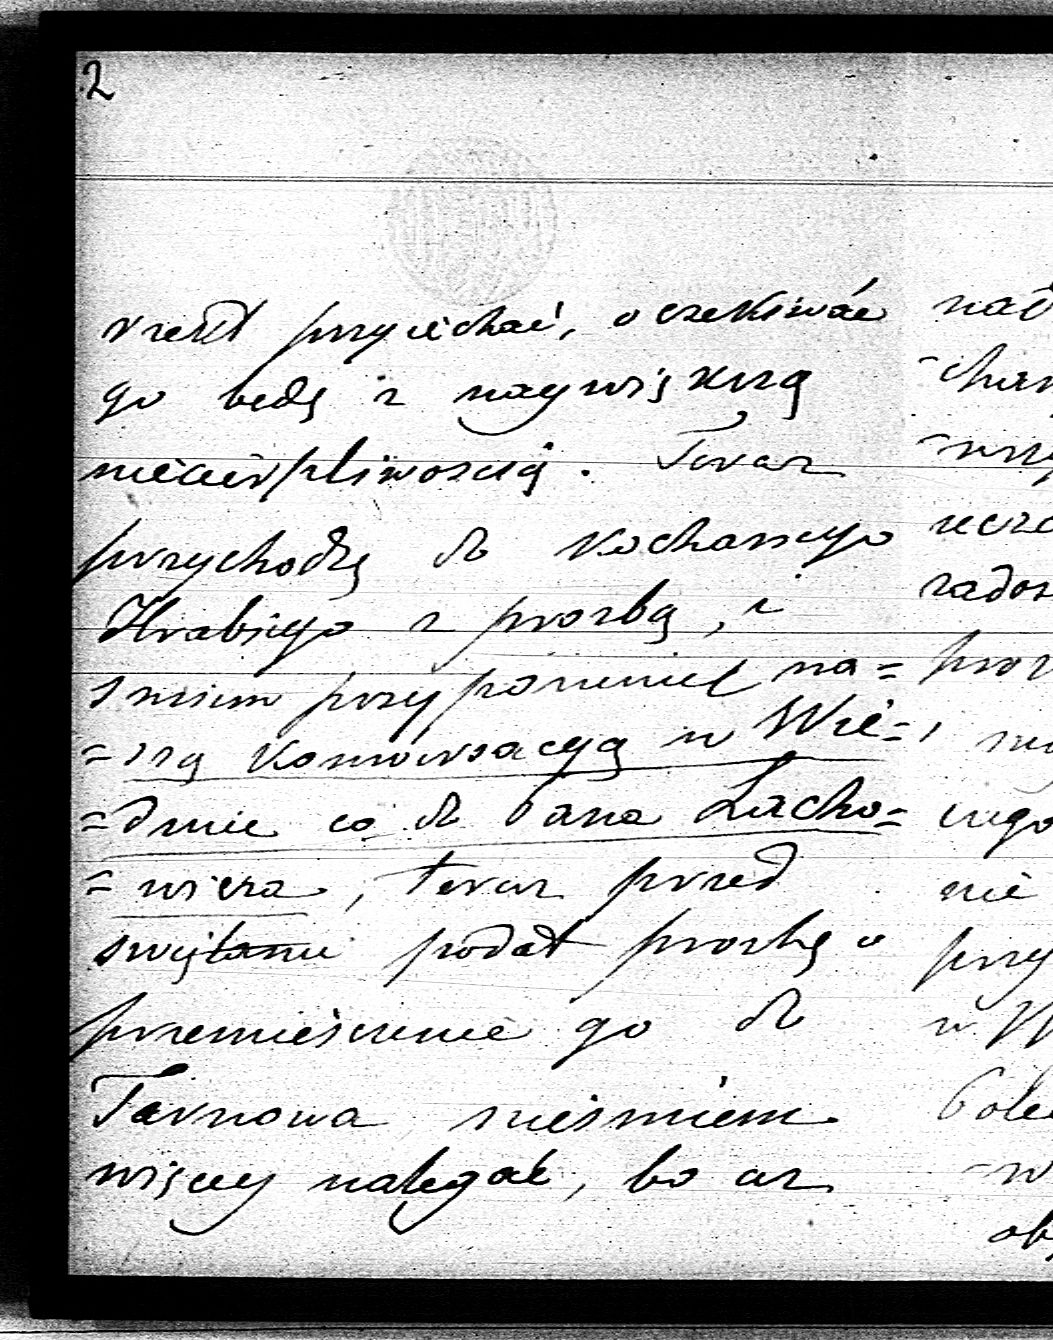 2
rzekł przyiechać, oczekiwać
go będę z naywiększą
niecierpliwoscią. Teraz
przychodzę do Kochanego
Hrabiego z prozbą, i
smiem przypomnieć na=
=szą Konwersacyą w Wie=
=dniu co do Pana Lacho=
=wicza, teraz przed
swiętami podał prozbę o
przemieszczenie go do
Tarnowa nieśmiem
więcey nalegać, bo az
nad
-chan
-wszy
ucze
rados
proz
i my
iego
nie
przy
w W
Bole
-w
oby